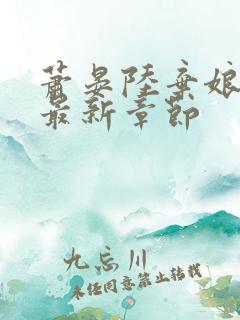 萧晏陆棄娘
最新章節
九忘川
未经同意禁止转载